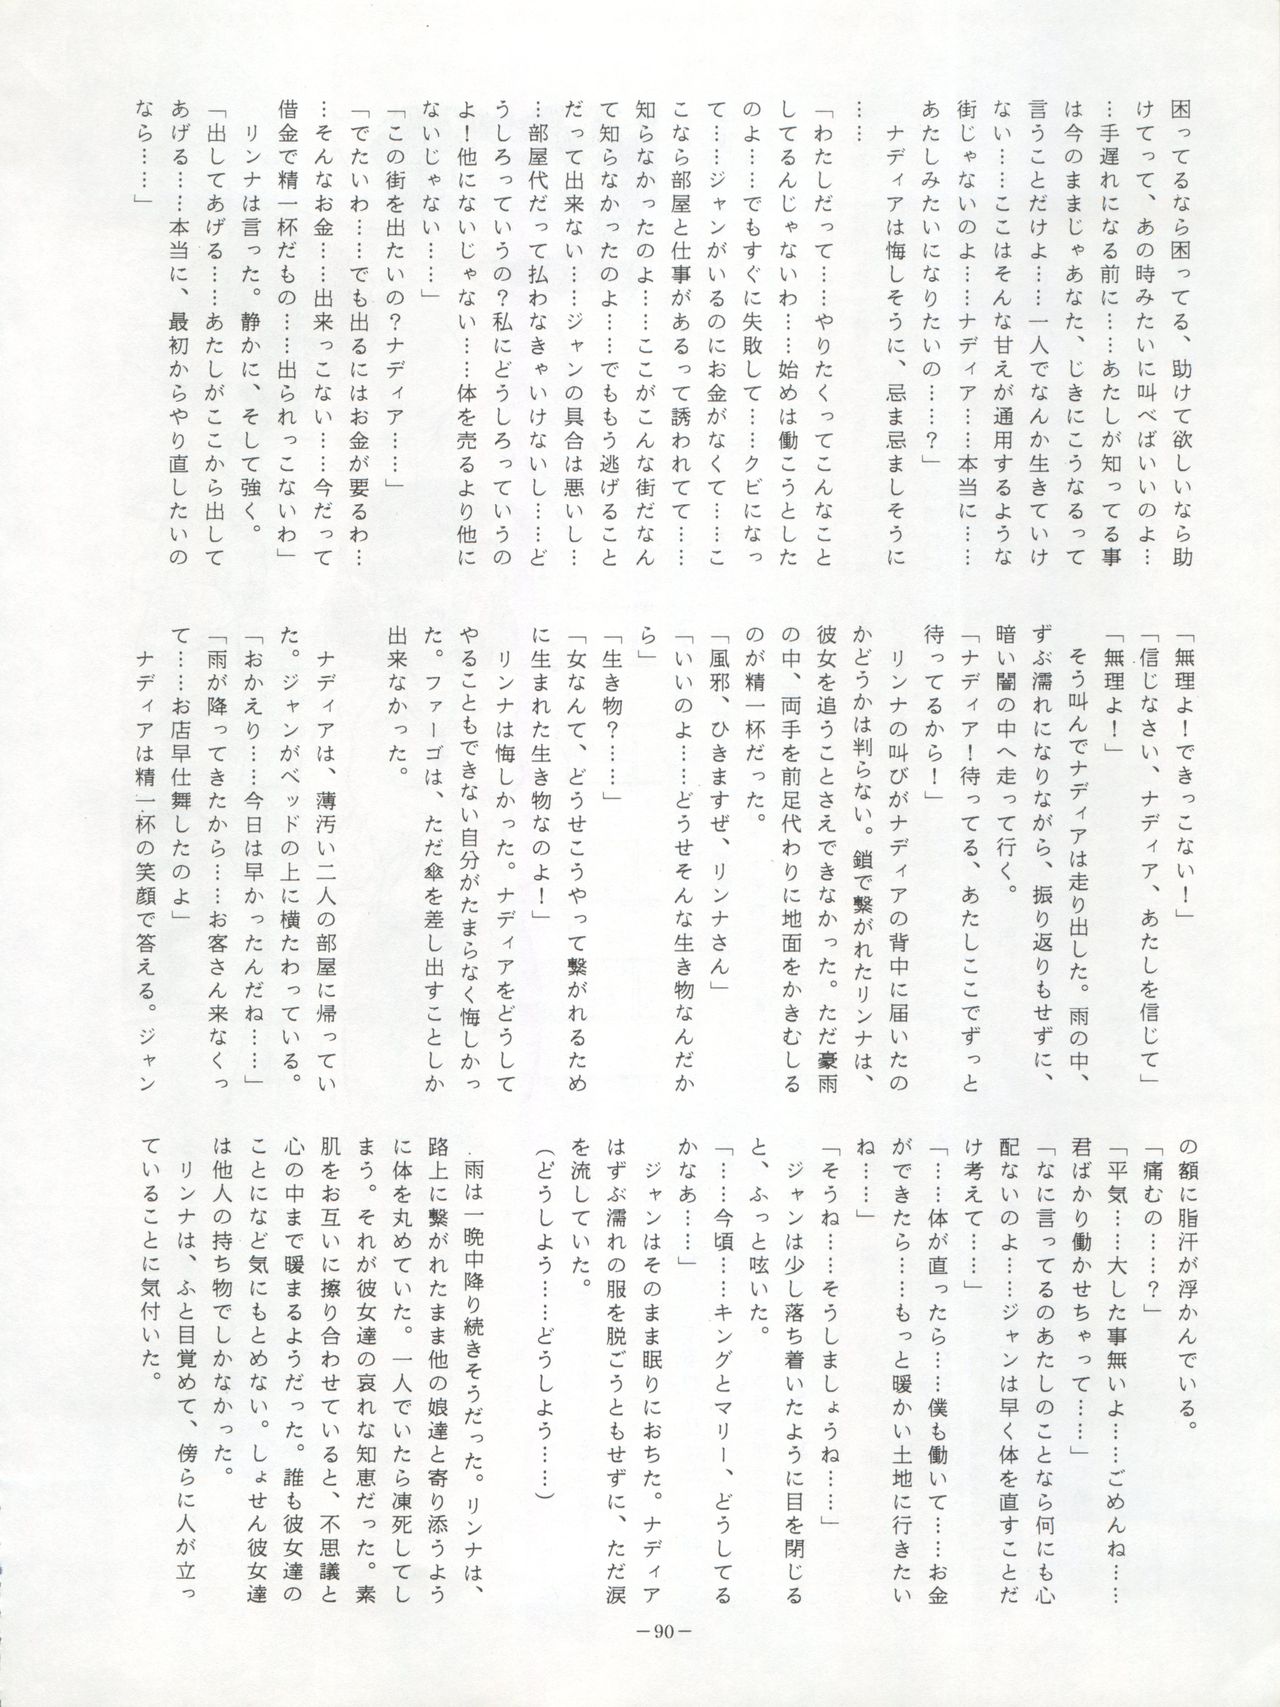 困ってるなら困ってる、助けて欲しいなら助
けてって、あの時みたいに叫べばいいのよ…
…手遅れになる前に……あたしが知ってる事
は今のままじゃあなた、じきにこうなるって
言うことだけよ……一人でなんか生きていけ
ない……ここはそんな甘えが通用するような
街じゃないのよ……ナディア……本当に……
あたしみたいになりたいの……？」
　ナディアは悔しそうに、忌ま忌ましそうに
……
「わたしだって……やりたくってこんなこと
してるんじゃないわ……始めは働こうとした
のよ……でもすぐに失敗して……クビになっ
て……ジャンがいるのにお金がなくて……こ
こなら部屋と仕事があるって誘われてて……
知らなかったのよ……ここがこんな街だなん
て知らなかったのよ……でももう逃げること
だって出来ない……ジャンの具合は悪いし…
…部屋代だって払わなきゃいけないし……ど
うしろっていうの？私にどうしろっていうの
よ！他にないじゃない……体を売るより他に
ないじゃない……」
「この街を出たいの？ナディア……」
「でたいわ……でも出るにはお金が要るわ…
…そんなお金……出来っこない……今だって
借金で精一杯だもの……出られっこないわ」
　リンナは言った。静かに、そして強く。
「出してあげる……あたしがここから出して
あげる……本当に、最初からやり直したいの
なら……」
「無理よ！できっこない！」
「信じなさい、ナディア、あたしを信じて」
「無理よ！」
　そう叫んでナディアは走り出した。雨の中、
ずぶ濡れになりながら、振り返りもせずに、
暗い闇の中へ走って行く。
「ナディア！待ってる、あたしここでずっと
待ってるから！」
　リンナの叫びがナディアの背中に届いたの
かどうかは判らない。鎖で繋がれたリンナは、
彼女を追うことさえできなかった。ただ豪雨
の中、両手を前足代わりに地面をかきむしる
のが精一杯だった。
「風邪、ひきますぜ、リンナさん」
「いいのよ……どうせそんな生き物なんだか
ら」
「生き物？……」
「女なんて、どうせこうやって繋がれるため
に生まれた生き物なのよ！」
　リンナは悔しかった。ナディアをどうして
やることもできない自分がたまらなく悔しかっ
た。ファーゴは、ただ傘を差し出すことしか
出来なかった。
　ナディアは、薄汚い二人の部屋に帰ってい
た。ジャンがベッドの上に横たわっている。
「おかえり……今日は早かったんだね……」
「雨が降ってきたから……お客さん来なくっ
て……お店早仕舞したのよ」
　ナディアは精一杯の笑顔で答える。ジャン
の額に脂汗が浮かんでいる。
「痛むの……？」
「平気……大した事無いよ……ごめんね……
君ばかり働かせちゃって……」
「なに言ってるのあたしのことなら何にも心
配ないのよ……ジャンは早く体を直すことだ
け考えて……」
「……体が直ったら……僕も働いて……お金
ができたら……もっと暖かい土地に行きたい
ね……」
「そうね……そうしましょうね……」
　ジャンは少し落ち着いたように目を閉じる
と、ふっと呟いた。
「……今頃……キングとマリー、どうしてる
かなあ……」
　ジャンはそのまま眠りにおちた。ナディア
はずぶ濡れの服を脱ごうともせずに、ただ涙
を流していた。
（どうしよう……どうしよう……）
　雨は一晩中降り続きそうだった。リンナは、
路上に繋がれたまま他の娘達と寄り添うよう
に体を丸めていた。一人でいたら凍死してし
まう。それが彼女達の哀れな知恵だった。素
肌をお互いに擦り合わせていると、不思議と
心の中まで暖まるようだった。誰も彼女達の
ことになど気にもとめない。しょせん彼女達
は他人の持ち物でしかなかった。
　リンナは、ふと目覚めて、傍らに人が立っ
ていることに気付いた。
－90－